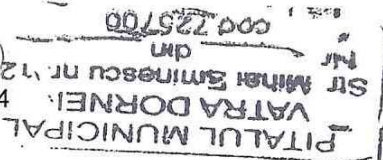 PITALUL MUNICIPAL
VATRA DORNEI
Str Mihai Eminescu nr. 12
Nr din
cod 725700
4